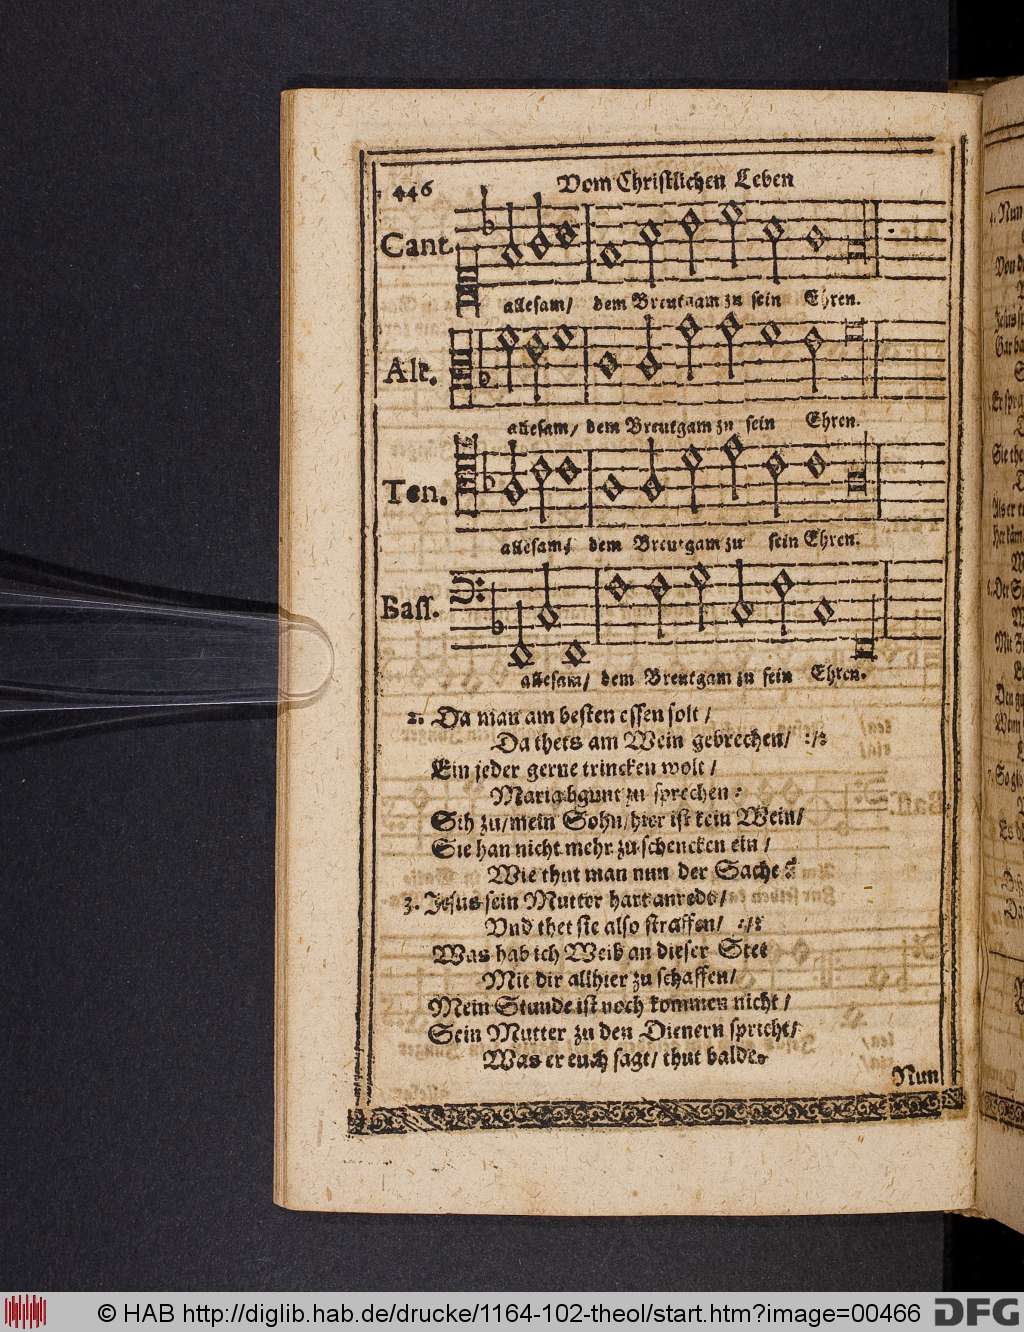 446 Vom Christlichen Leben
Cant.
allesam/ dem Breutgam zu sein Ehren.
Alt.
allesam/ dem Breutgam zu sein Ehren.
Ten.
allesam/ dem Breutgam zu sein Ehren.
Bass.
allesam/ dem Breutgam zu sein Ehren.
2. Da man am besten essen solt /
Da thets am Wein gebrechen/ :/:
Ein jeder gerne trincken wolt /
Maria bgunt zu sprechen:
Sih zu/ mein Sohn/ hier ist kein Wein/
Sie han nicht mehr zu schencken ein /
Wie thut man nun der Sache?
3. Jesus sein Mutter hart anredt/
Vnd thet sie also straffen/ :/:
Was hab ich Weib an dieser Stet
Mit dir allhier zu schaffen/
Mein Stunde ist noch kommen nicht /
Sein Mutter zu den Dienern spricht/
Was er euch sagt/ thut balde.
Nun
© HAB http://diglib.hab.de/drucke/1164-102-theol/start.htm?image=00466
DFG